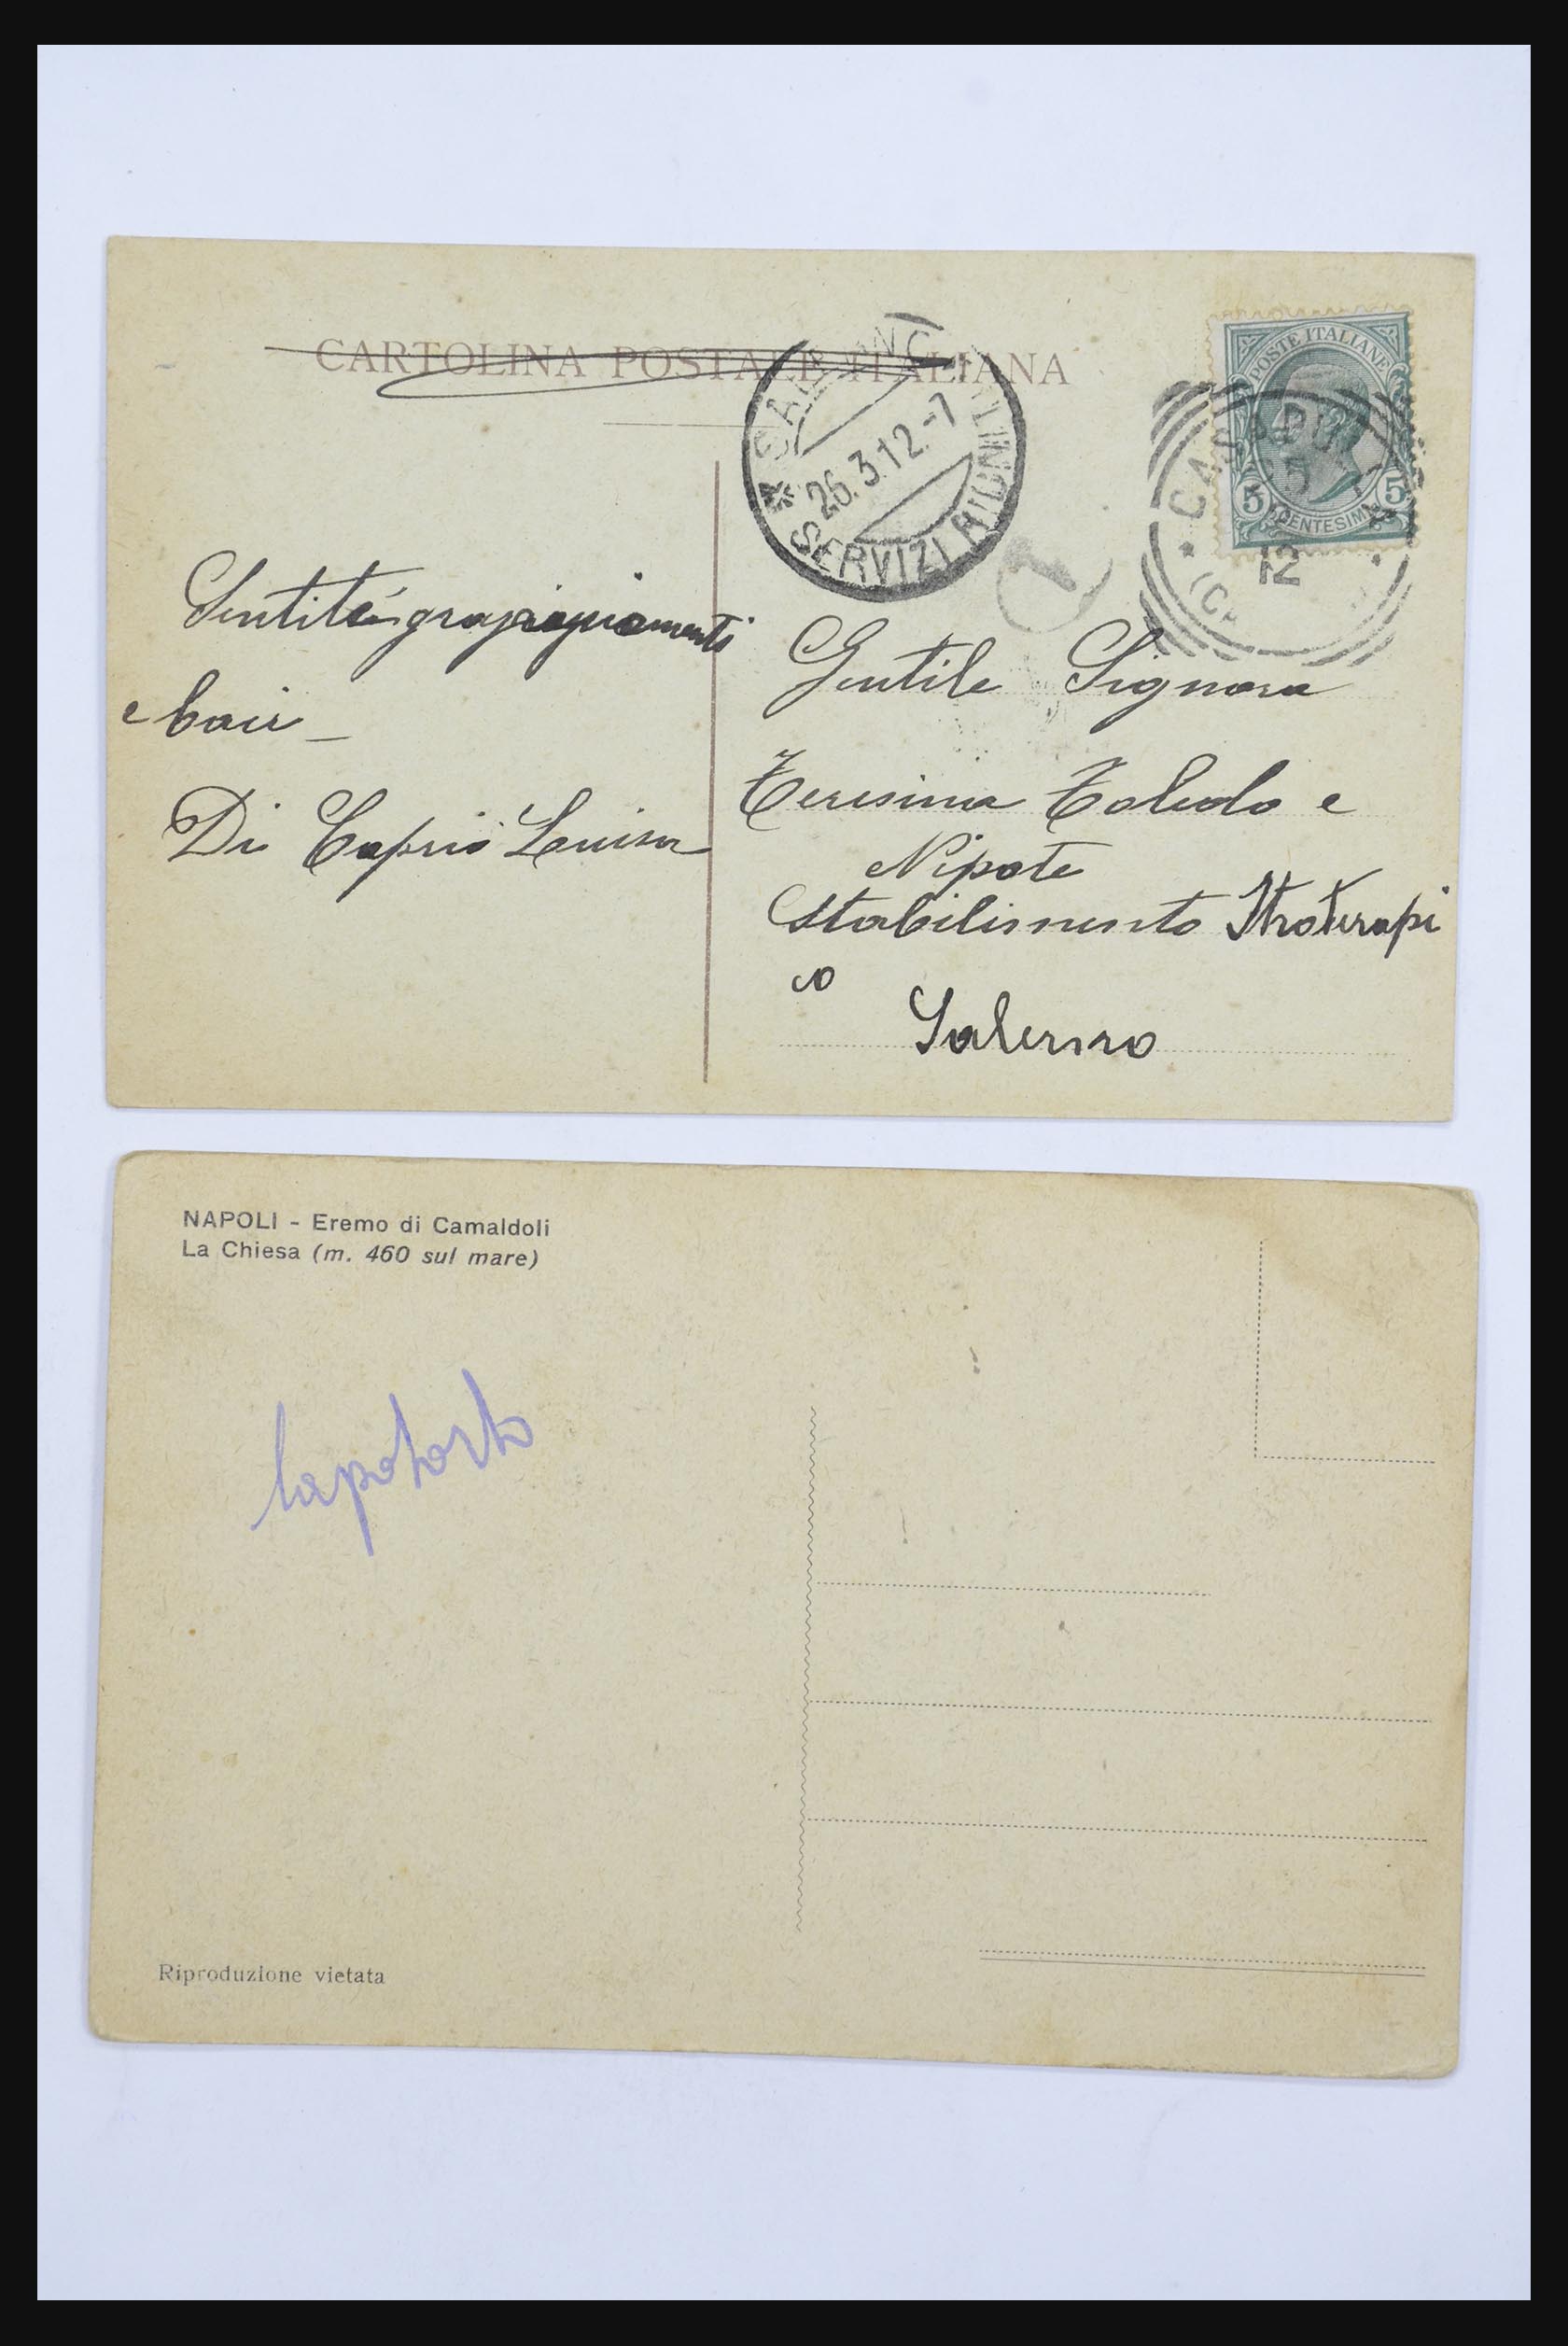 CARTOLINA POSTALE ITALIANA
26.3.12.-7
SERVIZI RIUNITI
POSTE ITALIANE
5 5
CENTESIMI
12
Sentite
e baci
Di Caprio Luisa
Gentile Signora
Teresina Toledo e
Nipote
Stabilimento Itroterapi
co
Salerno
NAPOLI - Eremo di Camaldoli
La Chiesa (m. 460 sul mare)
Riproduzione vietata